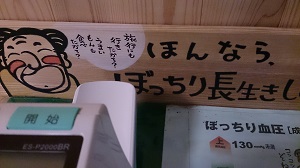 旅行にも
行きたなる?
うまい
もんも
食べたなる?
ほんなら、
ぼっちり長生きし
開始
ES-P2000BR
ぼっちり血圧
上
130